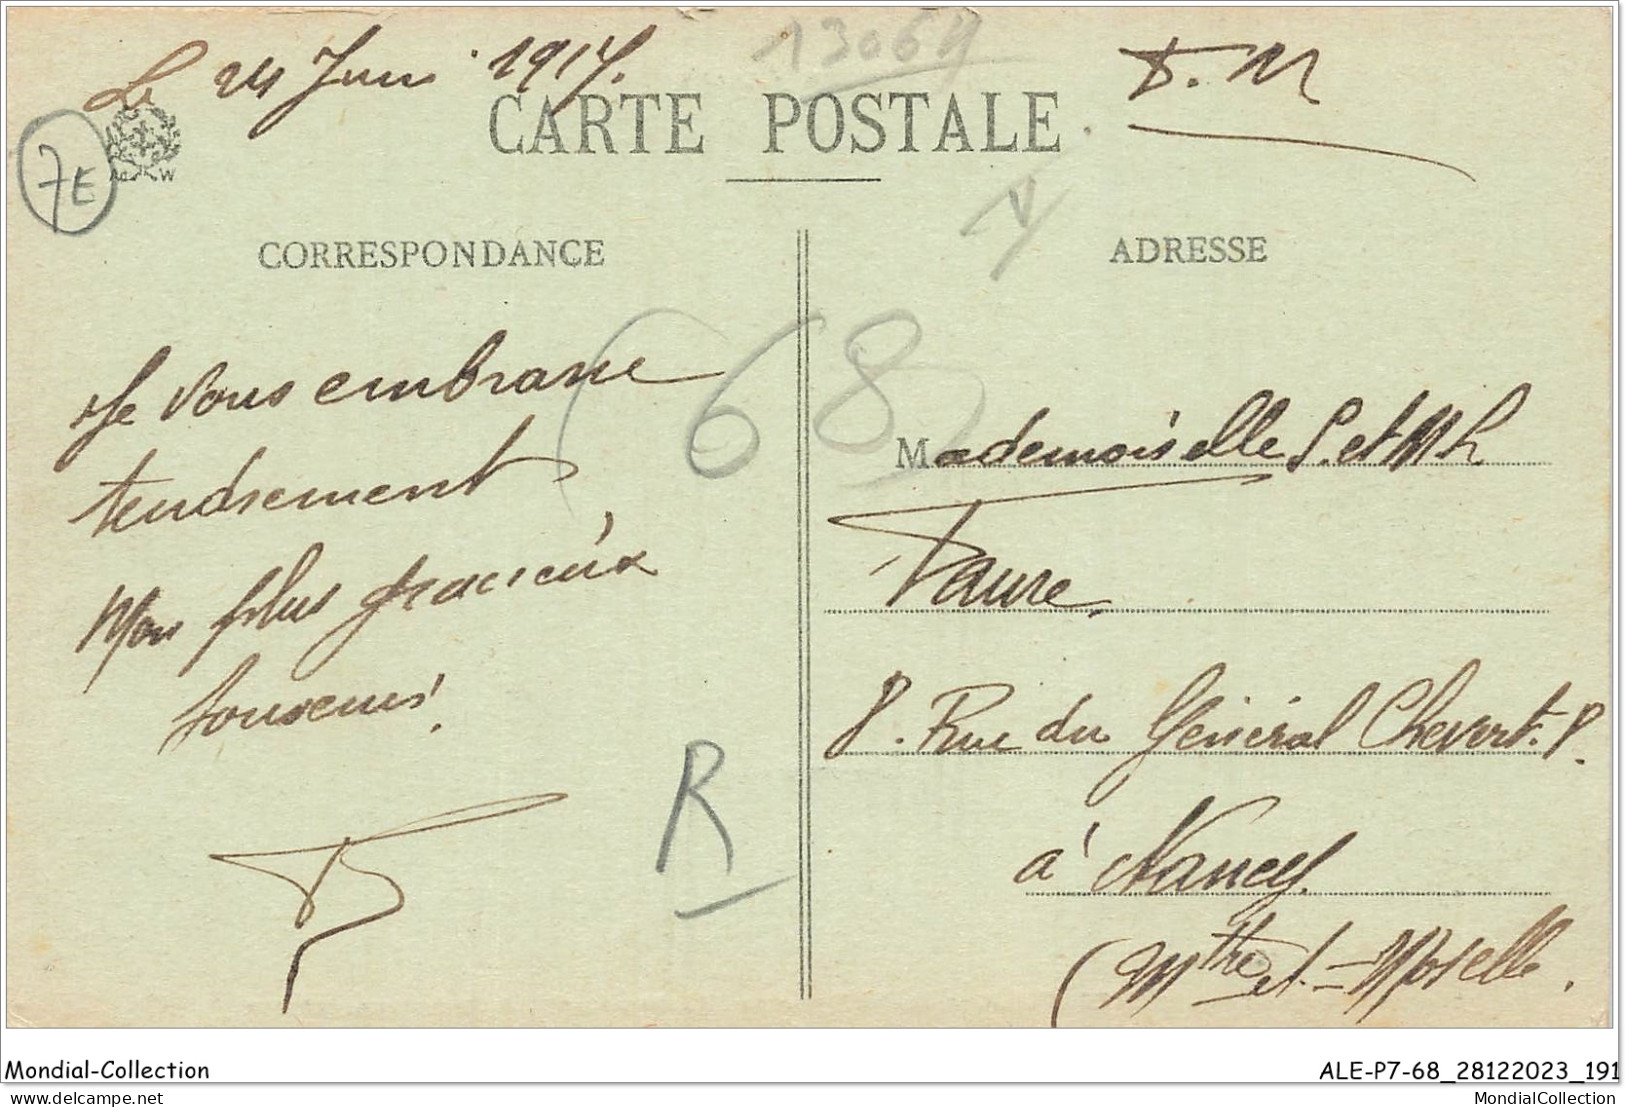 Le 24 Juin 1917.
13064
F. M
CARTE POSTALE
7E
A W
CORRESPONDANCE
ADRESSE
(68)
Je vous embrasse
tendrement
Mon plus gracieux
souvenir.
R
Mademoiselle S. et M L
Faure.
8. Rue du Général Chevert. 8.
à Nancy.
(Mthe et-Moselle.
Mondial-Collection
ALE-P7-68_28122023_191
Mondial-Collection.net
MondialCollection